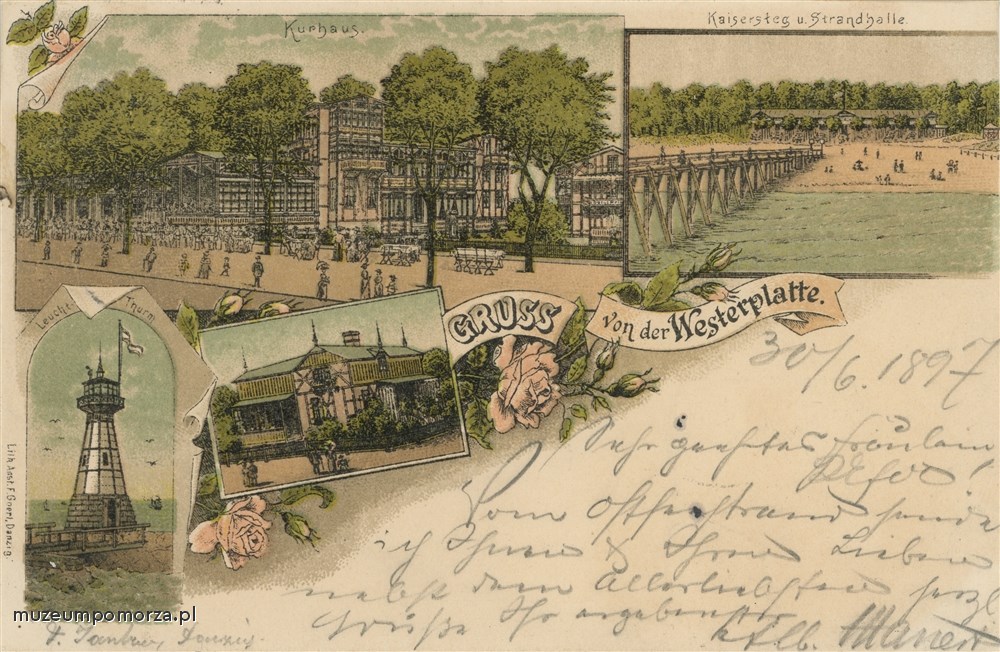 Kurhaus.
Kaisersteg u. Strandhalle.
Leucht Thurm
GRUSS
von der Westerplatte.
30/6. 1897
Sehr geehrtes Fräulein
Vom Ostseestrand sende
ich Ihnen & Ihren Lieben
nebst dem Allerliebsten herzl
Grüße Ihr ergebenster
Alb.
Lith. Anst. F. Danzig.
muzeumpomorza.pl
Danzig.